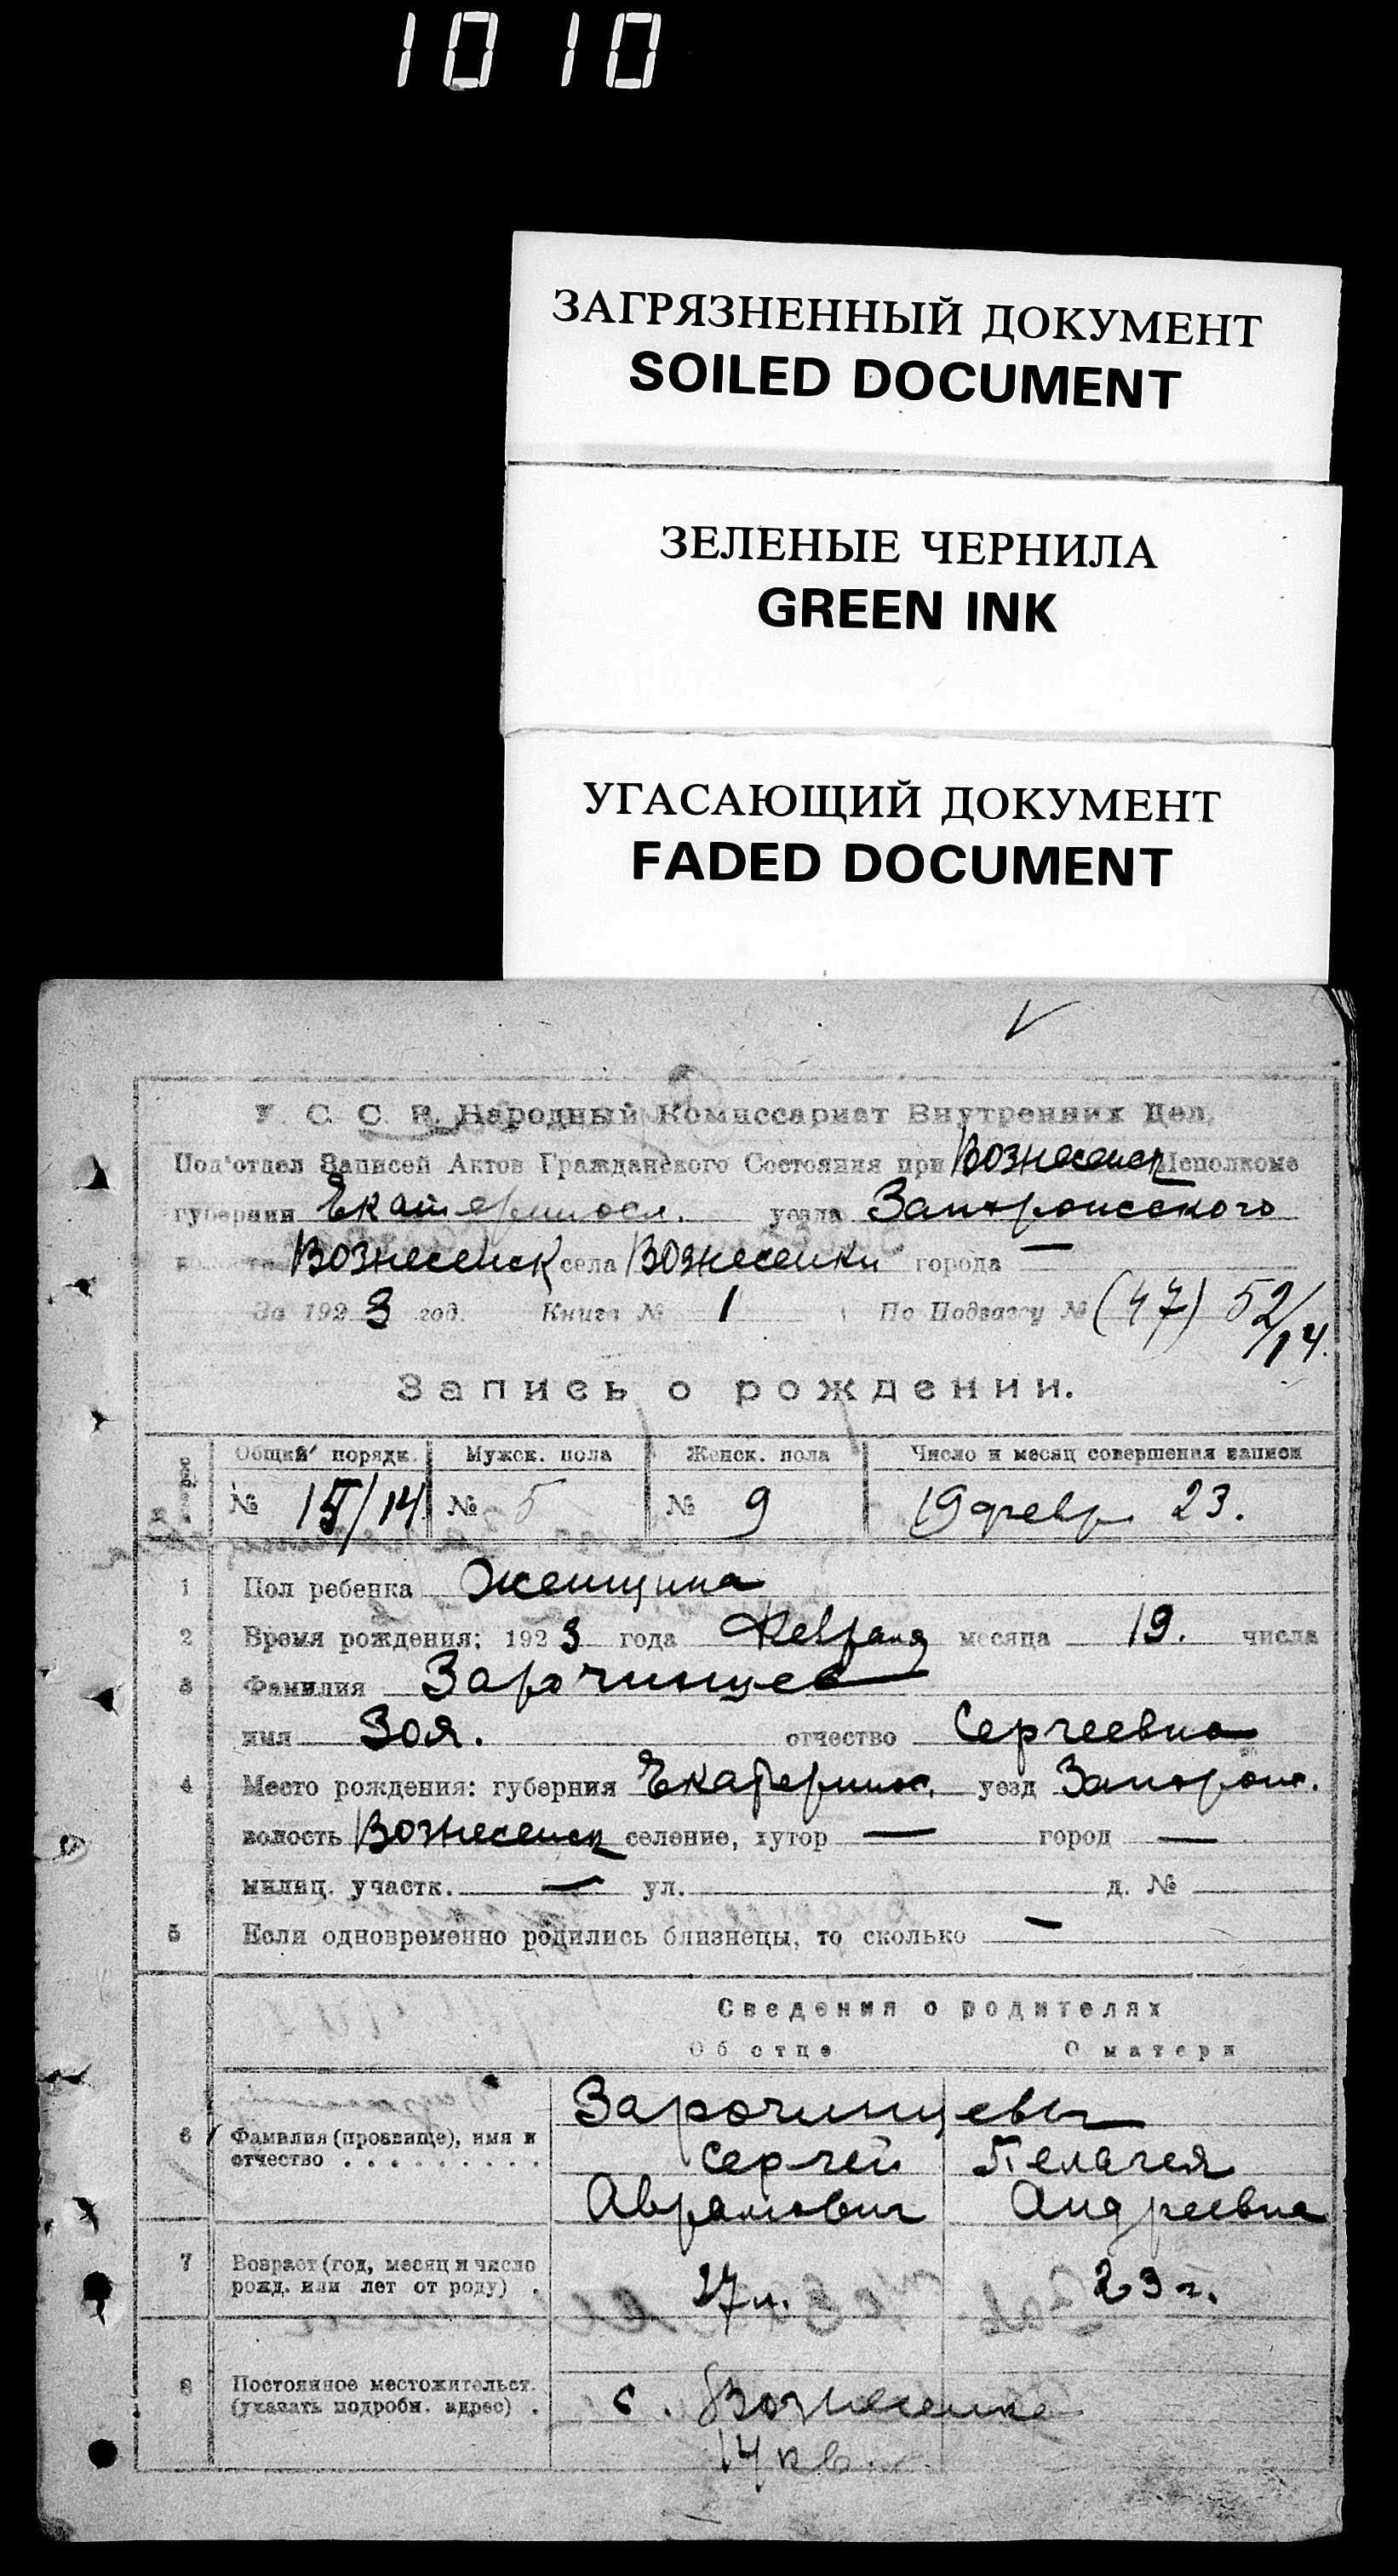 1010
ЗАГРЯЗНЕННЫЙ ДОКУМЕНТ
SOILED DOCUMENT
ЗЕЛЕНЫЕ ЧЕРНИЛА
GREEN INK
УГАСАЮЩИЙ ДОКУМЕНТ
FADED DOCUMENT
У. С. С. Р. Народный Комиссариат Внутренних Дел.
Под'отдел Записей Актов Гражданского Состояния при Вознесенск Исполкоме
губернии Екатериносл. уезда Запорожского
волости Вознесенск села Вознесенки города —
За 1923 год. Книга № 1 По Подвазгу № (47) 52/14.
Запись о рождении.
Общий порядк. Мужск. пола Женск. пола Число и месяц совершения записи
№ 15/14 № 5 № 9 19 февр 23.
1 Пол ребенка Женщина
2 Время рождения: 1923 года Февраля месяца 19. числа
3 Фамилия Зарочинцев
имя Зоя. отчество Сергеевна
4 Место рождения: губерния Екатеринос. уезд Запорож.
волость Вознесенск селение, хутор — город —
милиц. участк. — ул. д. №
5 Если одновременно родились близнецы, то сколько —
Сведения о родителях
Об отце О матери
Зарочинцевы
6 Фамилия (прозвище), имя и Сергей Пелагея
отчество . . . . . . . . . Аврамович Андреевна
7 Возраст (год, месяц и число 27 л. 23 г.
рожд. или лет от роду) .
8 Постоянное местожительст. с. Вознесенка
(указать подробн. адрес) . 14 кв.